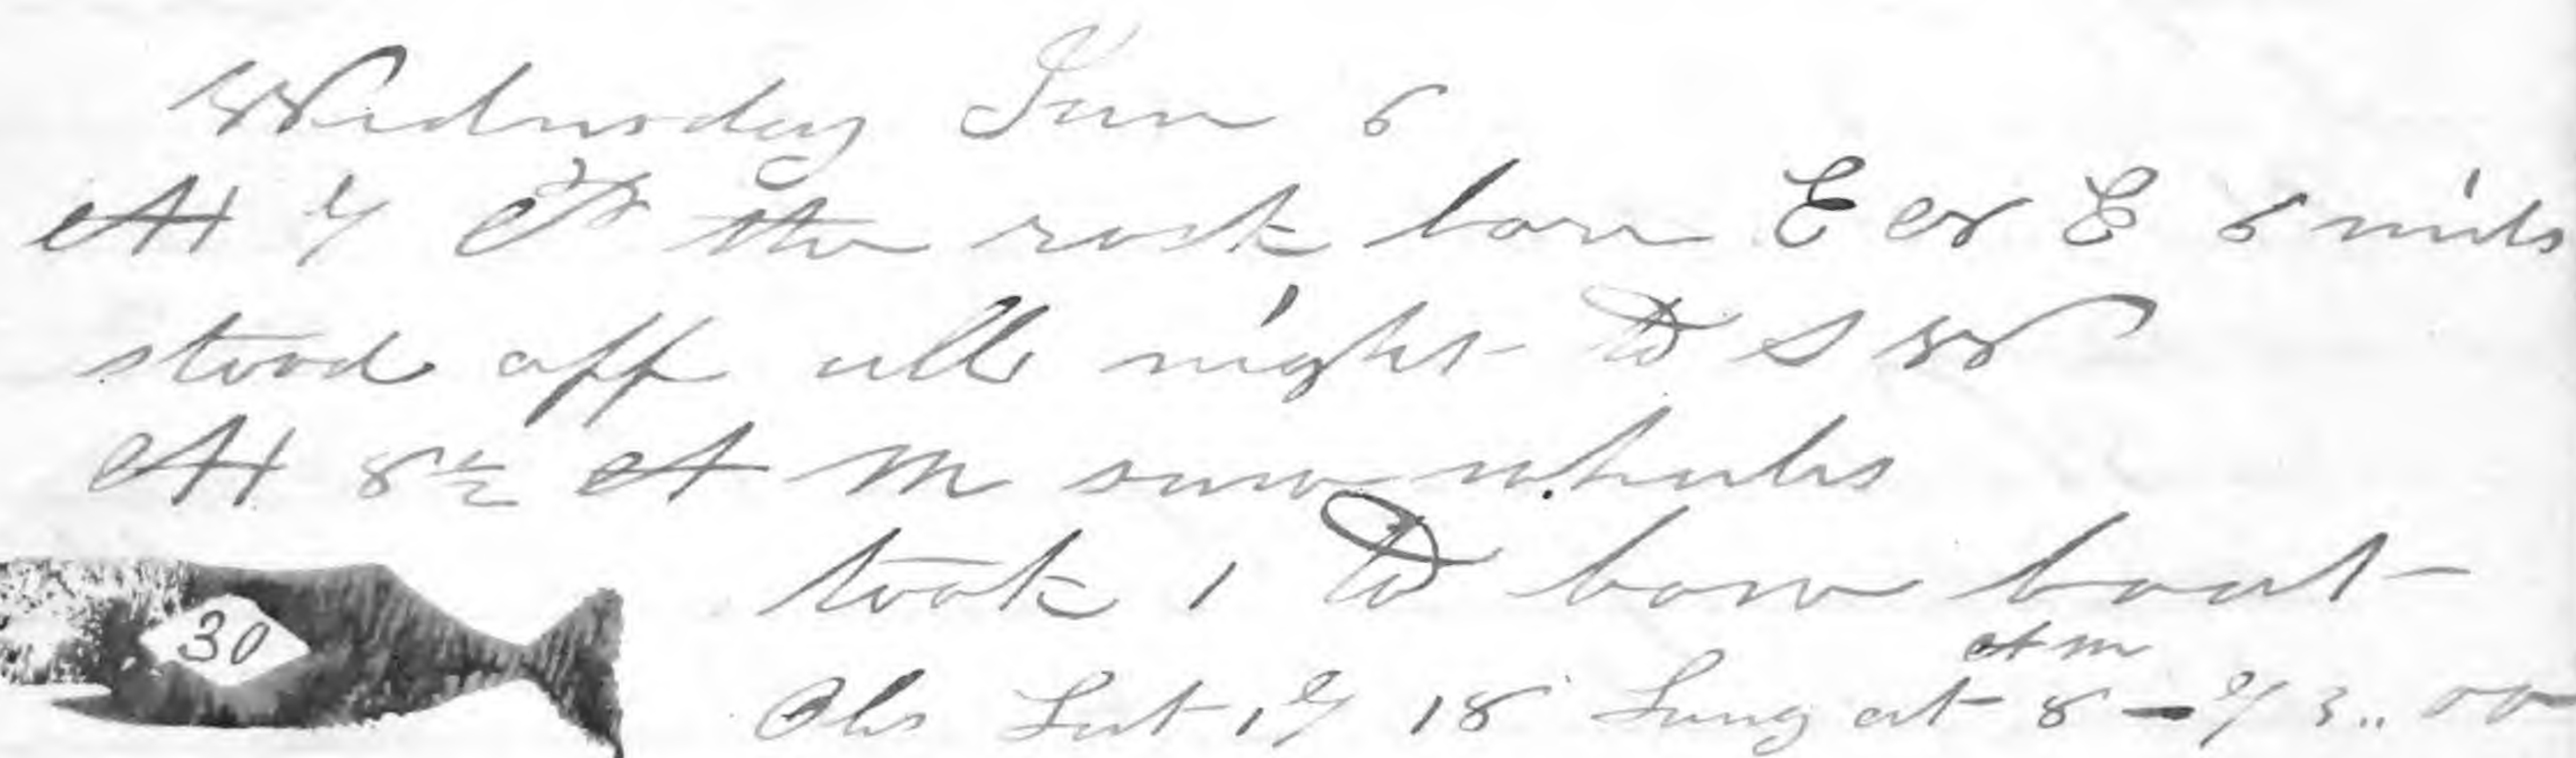 Wednesday Jun 6
At 7 P the rock bore E or E 6 miles
stood off all night to S W
At 8½ A M saw whales
took 1 to bow boat
30
A M
Obs Lat 17 18 Long at 8 - 73..00